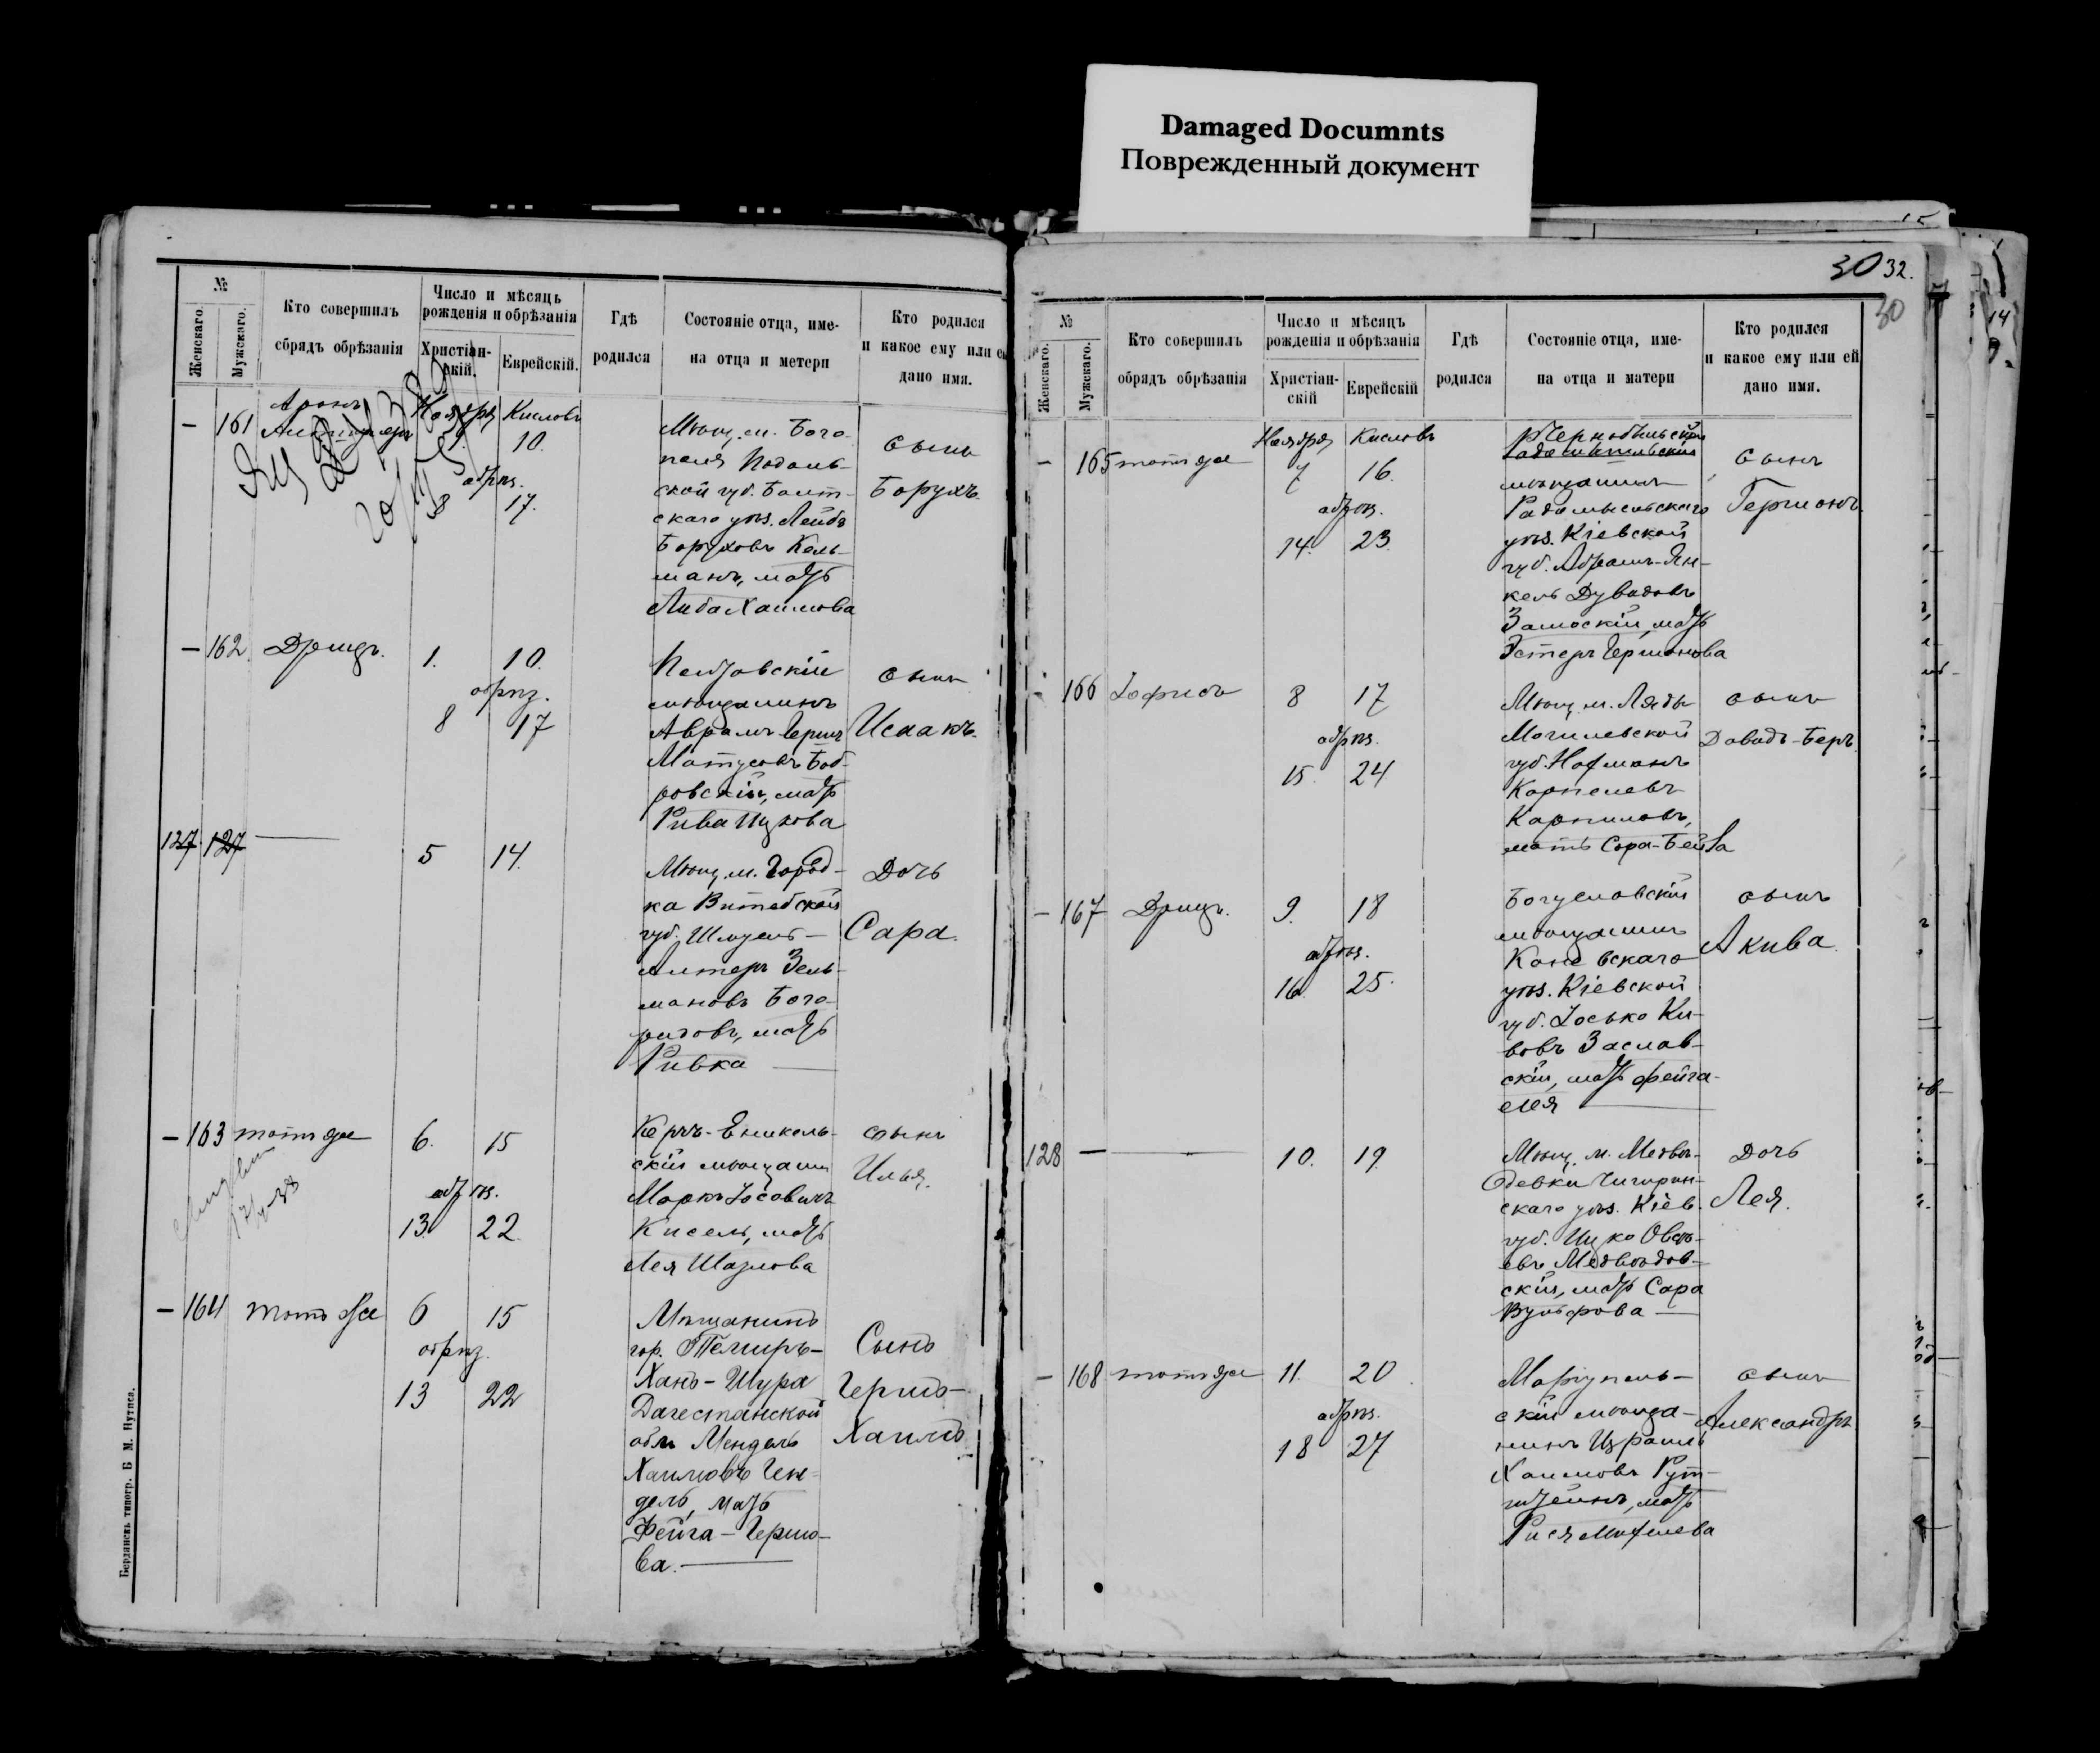 Damaged Documnts
Поврежденный документ
№
Женскаго.
Мужскаго.
Кто совершилъ
обрядъ обрѣзанія
Число и мѣсяцъ
рожденія и обрѣзанія
Христіан-
скій.
Еврейскій.
Гдѣ
родился
Состояніе отца, име-
на отца и метери
Кто родился
и какое ему или ей
дано имя.
— 161
Аронъ
Ноября Кислевъ
1. 10.
обрѣз.
8 17.
Мѣщ. м. Бого-
поля Подоль-
ской губ. Балт-
скаго уѣз. Лейбъ
Боруховъ Кель-
манъ, мать
Либа Хаимова
сынъ
Борухъ.
— 162 Дрицъ. 1. 10.
обрѣз.
8 17
мѣщанинъ
Аврамъ Герш
Матусовъ Боб-
ровскій, мать
Рива Ицкова
сынъ
Исаакъ.
127 127 — 5 14.
Мѣщ. м. Город-
ка Витебской
губ. Шмуель-
Алтеръ Зель-
мановъ Бого-
родовъ, мать
Ривка —
Дочь
Сара.
— 163 тотъ же 6. 15
обрѣз.
13. 22.
Керчъ-Еникаль-
скій мѣщанин
Маркъ Іосевичъ
Кисель, мать
Лея Шаулова
сынъ
Илья.
— 164 тотъ же 6 15
обрѣз.
13 22
Мѣщанинъ
гор. Темиръ-
Ханъ-Шура
Дагестанской
обл. Мендель
Хаимовъ Ген-
дель, мать
Фейга-Гершо-
ва. —
Сынъ
Гершъ-
Хаимъ
Бердянскъ типогр. Б М. Нутиса.
30 32.
30
№
Женскаго.
Мужскаго.
Кто совершилъ
обрядъ обрѣзанія
Число и мѣсяцъ
рожденія и обрѣзанія
Христіан-
скій
Еврейскій
Гдѣ
родился
Состояніе отца, име-
на отца и матери
Кто родился
и какое ему или ей
дано имя.
— 165 тотъ же
Ноября Кислевъ
7 16.
обрѣз.
14. 23.
Чернобыльскій
мѣщанинъ
Радомысльскаго
уѣз. Кіевской
губ. Абрамъ-Ян-
кель Дувидовъ
Замоскій, мать
Эстеръ Гершонова
сынъ
Гершонъ.
— 166 8 17
обрѣз.
15. 24
Мѣщ. м. Ляды
Могилевской
губ. Нохманъ
Карпелевъ
Карпиловъ,
мать Сора-Бейла
сынъ
Давидъ-Беръ.
— 167 Дрицъ. 9. 18
обрѣз.
16. 25.
Богуславскій
мѣщанинъ
Каневскаго
уѣз. Кіевской
губ. Іосько Ки-
вовъ Заслав-
скій, мать Фейга-
Лея —
сынъ
Акива.
128 — — 10. 19.
Мѣщ. м. Медвѣ-
довки Чигирин-
скаго уѣз. Кіев.
губ. Ицко Овсѣ-
евъ Медвѣдов-
скій, мать Сара
Вульфова —
Дочь
Лея.
— 168 тотъ же 11. 20
обрѣз.
18 27
Маріуполь-
скій мѣща-
нинъ Израиль
Хаимовъ Рут-
штейнъ, мать
Рися
сынъ
Александръ.